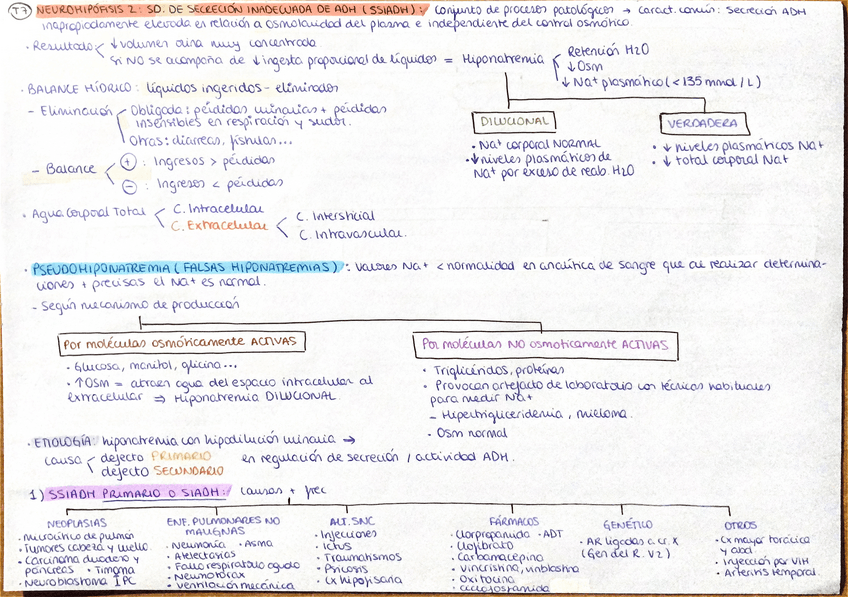 T7 NEUROHIPÓFISIS 2: SD. DE SECRECIÓN INADECUADA DE ADH (SSIADH): Conjunto de procesos patológicos → caract. común: secreción ADH
inapropiadamente elevada en relación a osmolaridad del plasma e independiente del control osmótico.
· Resultado ↓ volumen orina muy concentrada
Si NO se acompaña de ↓ ingesta proporcional de líquidos = Hiponatremia
Retención H2O
↓ Osm
↓ Na+ plasmático (<135 mmol/L)
DILUCIONAL
· Na+ corporal NORMAL
· ↓ niveles plasmáticos de
Na+ por exceso de reab. H2O
VERDADERA
· ↓ niveles plasmáticos Na+
· ↓ total corporal Na+
· BALANCE HÍDRICO: líquidos ingeridos - eliminados
- Eliminación
Obligada: pérdidas urinarias + pérdidas
insensibles en respiración y sudor.
Otras: diarreas, fístulas...
- Balance
+ : Ingresos > pérdidas
- : Ingresos < pérdidas
· Agua Corporal Total
C. Intracelular
C. Extracelular
C. Intersticial
C. Intravascular.
· PSEUDOHIPONATREMIA (FALSAS HIPONATREMIAS): Valores Na+ < normalidad en analítica de sangre que al realizar determina-
ciones + precisas el Na+ es normal.
- Según mecanismo de producción
Por moléculas osmóticamente ACTIVAS
· Glucosa, manitol, glicina...
· ↑Osm = atraen agua del espacio intracelular al
extracelular ⇒ Hiponatremia DILUCIONAL.
Por moléculas NO osmoticamente ACTIVAS
· Triglicéridos, proteínas
· Provocan artefacto de laboratorio con técnicas habituales
para medir Na+
- Hipertrigliceridemia, mieloma.
· Osm normal
· ETIOLOGÍA: hiponatremia con hipodilución urinaria →
causa
defecto PRIMARIO
defecto SECUNDARIO
en regulación de secreción / actividad ADH.
1) SSIADH PRIMARIO O SIADH: causas + frec
NEOPLASIAS
· Microcítico de pulmón
· Tumores cabeza y cuello.
· Carcinoma duodeno y
páncreas · Timoma
· Neuroblastoma
ENF. PULMONARES NO
MALIGNAS
· Neumonía · Asma
· Atelectasias
· Fallo respiratorio agudo
· Neumotórax
· Ventilación mecánica
ALT. SNC
· Infecciones
· Ictus
· Traumatismos
· Psicosis
· Cx hipofisaria
FÁRMACOS
· Clorpropamida · ADT
· Clofibrato
· Carbamacepina
· Vincristina, vinblastina
· Oxitocina
· Ciclofosfamida
GENÉTICO
· AR ligadas a cr. X
(Gen del R. V2)
OTROS
· Cx mayor torácica
y abd
· Infección por VIH
· Arteritis temporal.